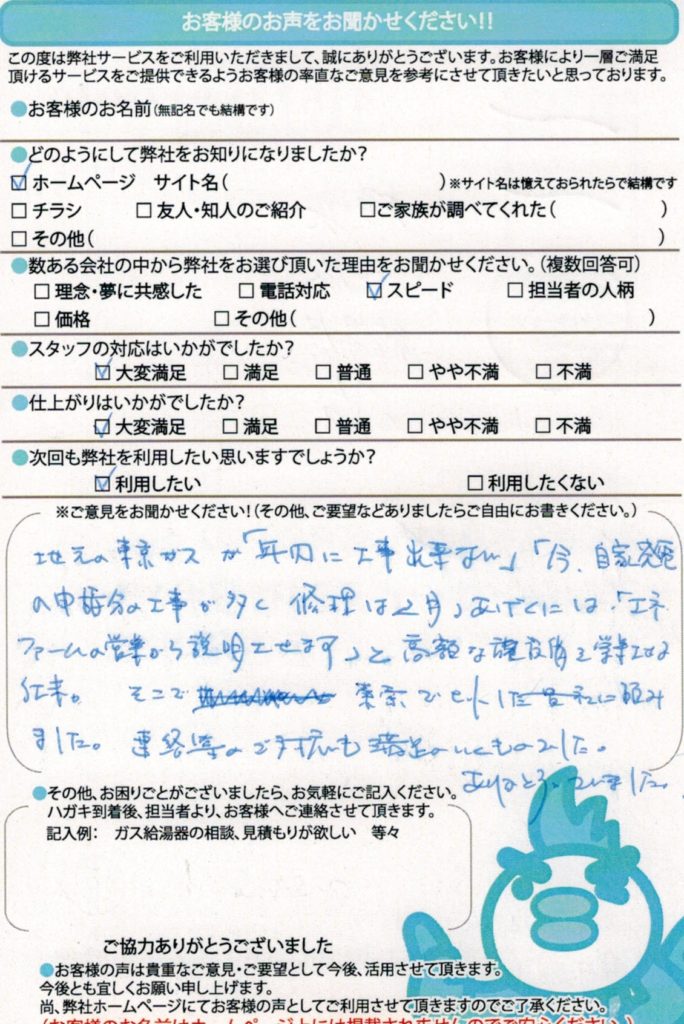 お客様のお声をお聞かせください!!
この度は弊社サービスをご利用いただきまして、誠にありがとうございます。お客様により一層ご満足
頂けるサービスをご提供できるようお客様の率直なご意見を参考にさせて頂きたいと思っております。
●お客様のお名前(無記名でも結構です)
●どのようにして弊社をお知りになりましたか?
☑ホームページ サイト名( )※サイト名は憶えておられたらで結構です
□チラシ □友人・知人のご紹介 □ご家族が調べてくれた( )
□その他( )
●数ある会社の中から弊社をお選び頂いた理由をお聞かせください。(複数回答可)
□理念・夢に共感した □電話対応 ☑スピード □担当者の人柄
□価格 □その他( )
●スタッフの対応はいかがでしたか?
☑大変満足 □満足 □普通 □やや不満 □不満
●仕上がりはいかがでしたか?
☑大変満足 □満足 □普通 □やや不満 □不満
●次回も弊社を利用したい思いますでしょうか?
☑利用したい □利用したくない
※ご意見をお聞かせください!(その他、ご要望などありましたらご自由にお書きください。)
地元の東京ガスが「年内に工事出来ない」「今、自家発電
の申請分の工事が多く修理は2月」あげくには「エネ
ファームの営業から説明させます」と高額な
仕事。そこで 検索でヒットした 社に頼み
ました。連絡等のご手配も満足のいくものでした。
ありがとうございました。
●その他、お困りごとがございましたら、お気軽にご記入ください。
ハガキ到着後、担当者より、お客様へご連絡させて頂きます。
記入例: ガス給湯器の相談、見積もりが欲しい 等々
ご協力ありがとうございました
●お客様の声は貴重なご意見・ご要望として今後、活用させて頂きます。
今後とも宜しくお願い申し上げます。
尚、弊社ホームページにてお客様の声としてご利用させて頂きますのでご了承ください。
(お客様のお名前はホームページ上には掲載されませんのでご安心ください。)